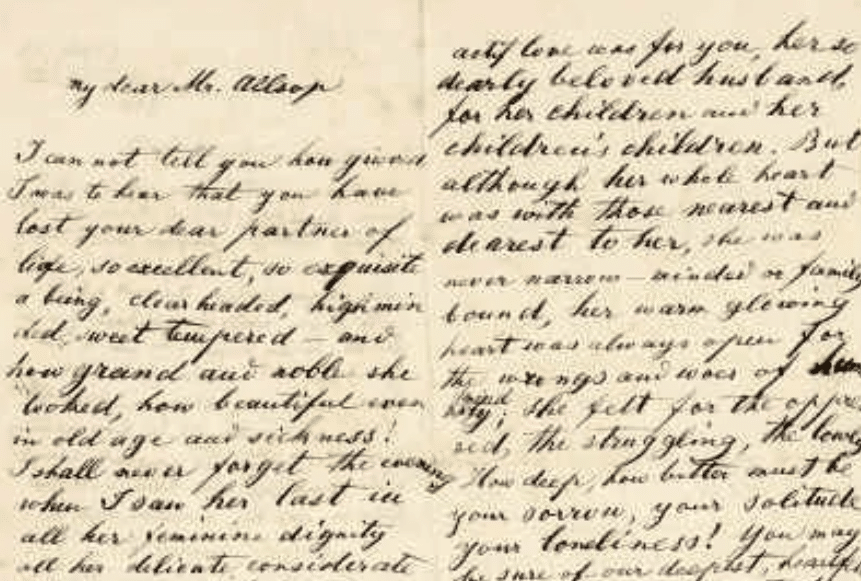 my dear Mr. Allsop
I can not tell you how grieved
I was to hear that you have
lost your dear partner of
life, so excellent, so exquisite
a being, clearheaded, highmin
ded, sweet tempered – and
how grand and noble she
looked, how beautiful even
in old age and sickness!
I shall never forget the evening
when I saw her last in
all her feminine dignity
all her delicate considerate
love was for you, her so
dearly beloved husband,
for her children and her
children's children. But
although her whole heart
was with those nearest and
dearest to her, she was
never narrow-minded or family
bound, her warm glowing
heart was always open for
the wrongs and woes of
she felt for the oppre
sed, the struggling, the lowly
How deep, how bitter must be
your sorrow, your solitude
your loneliness! You may
be sure of our deepest,